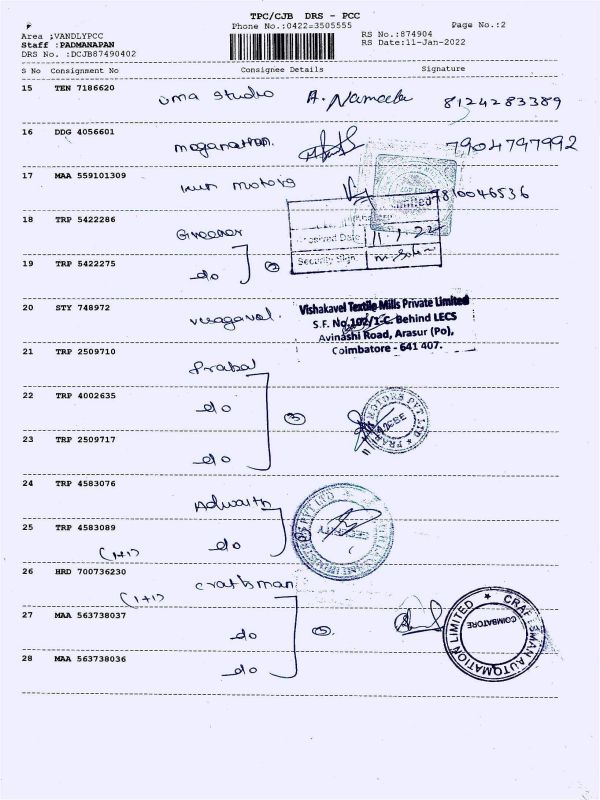 TPC/CJB DRS - PCC
Phone No.:0422=3505555
Page No.:2
Area ;VANDLYPCC
RS No.:874904
Staff :PADMANAPAN
RS Date:11-Jan-2022
DRS No. :DCJB87490402
S No Consignment No Consignee Details Signature
15 TEN 7186620 uma studio 8124283389
16 DDG 4056601 7904797992
17 MAA 559101309 motors 7810046536
Limited
Date 11.1.22
Security Sign.
18 TRP 5422286
19 TRP 5422275 do 2
20 STY 748972
Vishakavel Textile Mills Private Limited
S.F. No.102/1-C. Behind LECS
Avinashi Road, Arasur (Po),
Coimbatore - 641 407.
21 TRP 2509710
22 TRP 4002635 do 3
MOTORS PVT LTD
23 TRP 2509717 do
24 TRP 4583076 Adwaith
25 TRP 4583089 do
(1+1)
26 HRD 700736230 craftsman
(1+1)
27 MAA 563738037 do
CRAFTSMAN AUTOMATION LIMITED
COIMBATORE
28 MAA 563738036 do